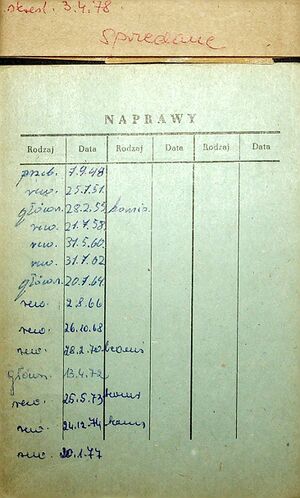 skreśl. 3.4.78
sprzedane
NAPRAWY
Rodzaj Data Rodzaj Data Rodzaj Data
przeb. 7.9.48
rew. 25.7.51
główn. 28.2.55
rew. 21.7.58
rew. 31.5.60
rew. 31.7.62
główn. 20.7.64
rew. 2.8.66
rew. 26.10.68
rew. 28.2.70
główn. 13.4.72
rew. 25.5.73
rew. 24.12.74
rew. 20.1.77